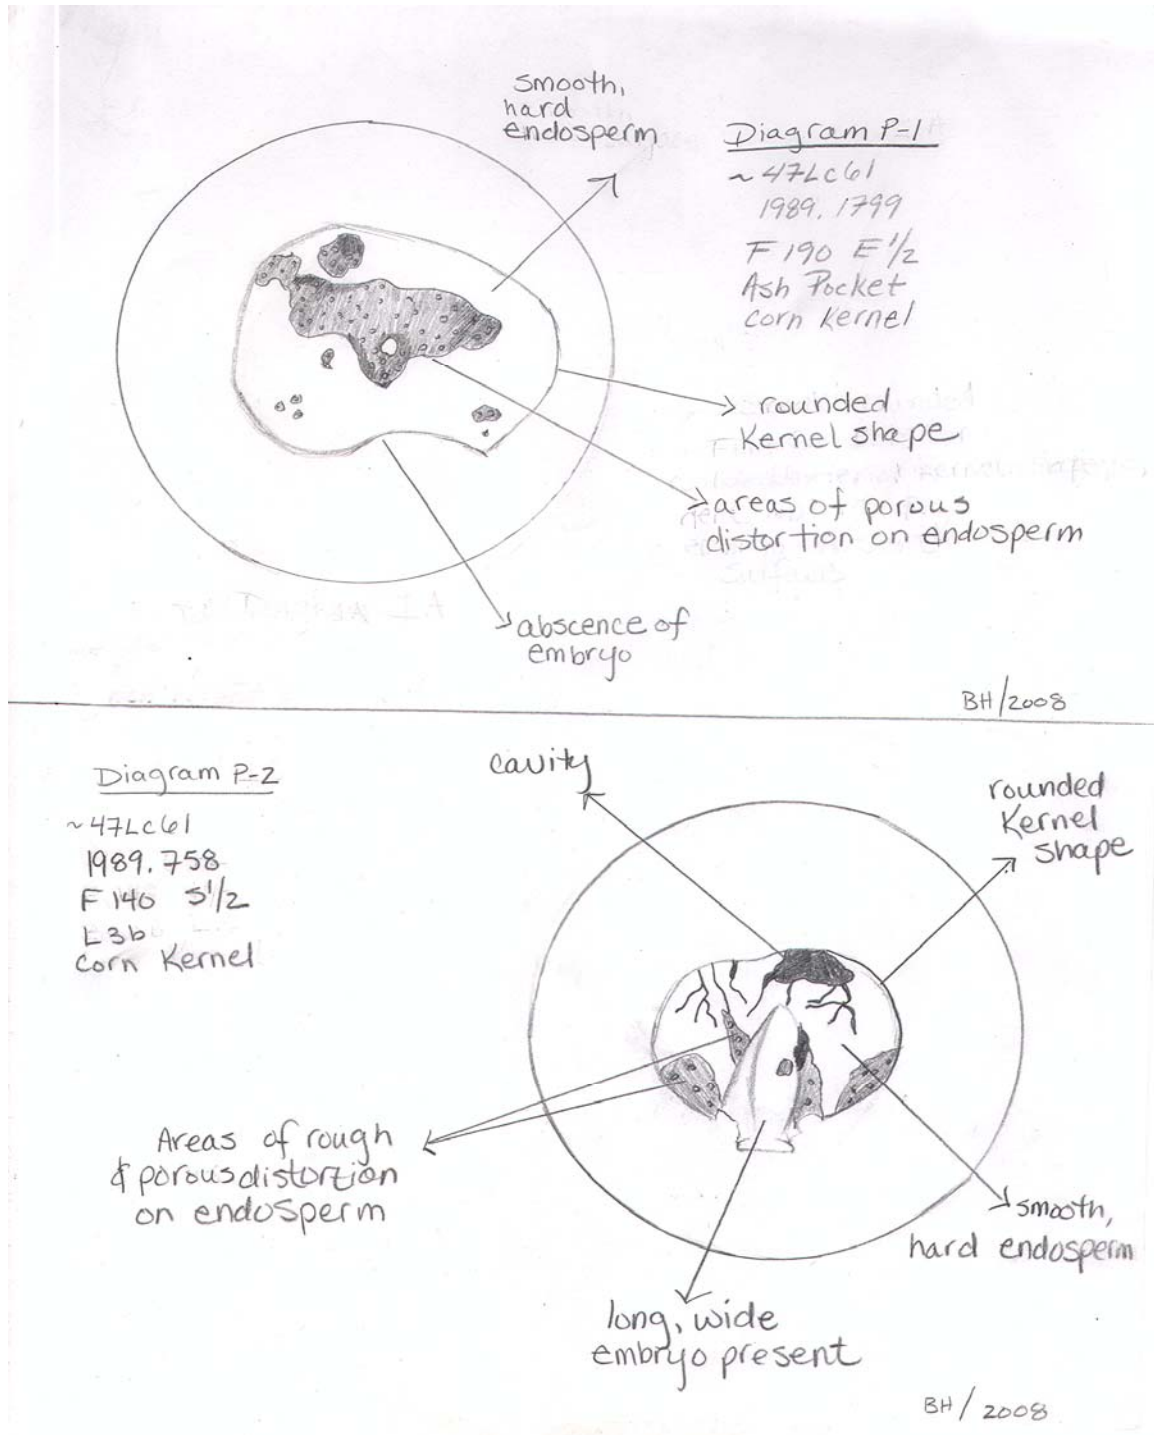 smooth,
hard
endosperm
Diagram P-1
~47Lc61
1989.1799
F 190 E 1/2
Ash Pocket
corn Kernel
rounded
Kernel shape
areas of porous
distortion on endosperm
abscence of
embryo
BH/2008
Diagram P-2
~47Lc61
1989.758
F 140 S 1/2
L3b
corn Kernel
cavity
rounded
Kernel
shape
Areas of rough
& porous distortion
on endosperm
smooth,
hard endosperm
long, wide
embryo present
BH/2008